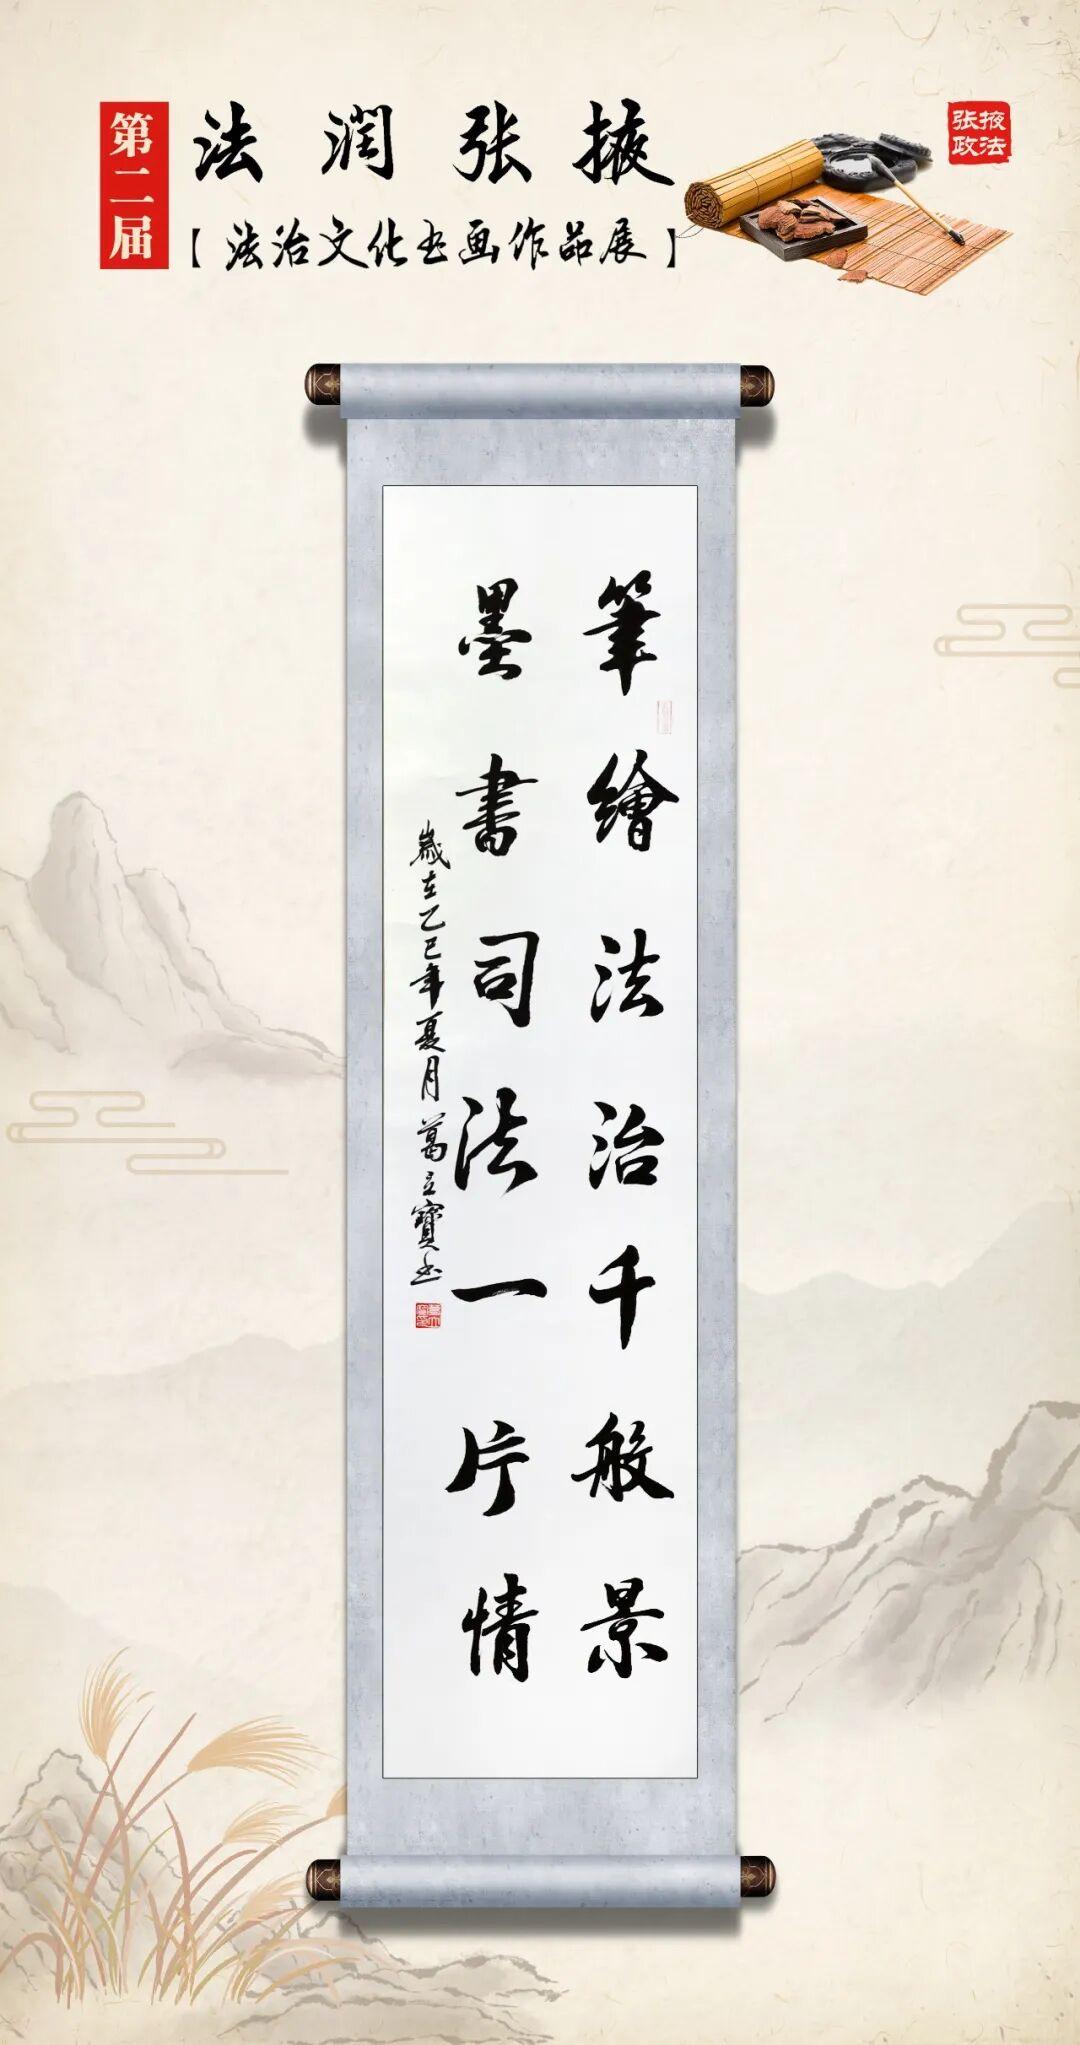 第二届
法润张掖
【法治文化书画作品展】
张掖
政法
筆繪法治千般景
墨書司法一片情
歲在乙巳年夏月葛立寶书